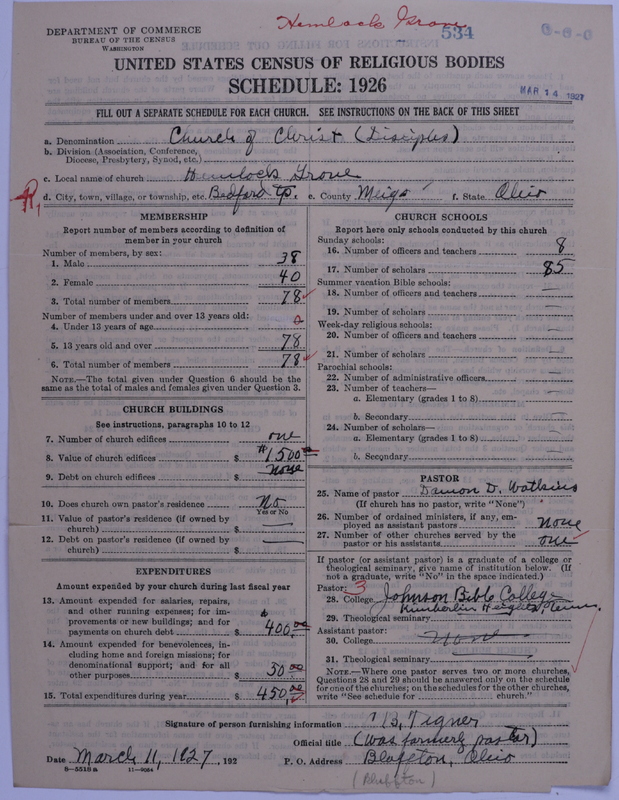 Hemlock Grove
DEPARTMENT OF COMMERCE
BUREAU OF THE CENSUS
WASHINGTON
534
0-0-0
UNITED STATES CENSUS OF RELIGIOUS BODIES
SCHEDULE: 1926
MAR 14 1927
FILL OUT A SEPARATE SCHEDULE FOR EACH CHURCH. SEE INSTRUCTIONS ON THE BACK OF THIS SHEET
a. Denomination Church of Christ (Disciples)
b. Division (Association, Conference,
Diocese, Presbytery, Synod, etc.)
c. Local name of church Hemlock Grove
d. City, town, village, or township, etc. Bedford Tp. e. County Meigs f. State Ohio
MEMBERSHIP
Report number of members according to definition of
member in your church
Number of members, by sex:
1. Male 38
2. Female 40
3. Total number of members 78
Number of members under and over 13 years old:
4. Under 13 years of age 0
5. 13 years old and over 78
6. Total number of members 78
NOTE.—The total given under Question 6 should be the
same as the total of males and females given under Question 3.
CHURCH BUILDINGS
See instructions, paragraphs 10 to 12
7. Number of church edifices one
8. Value of church edifices $ $1500 00
9. Debt on church edifices $ None
10. Does church own pastor's residence No
Yes or No
11. Value of pastor's residence (if owned by
church) $ —
12. Debt on pastor's residence (if owned by
church) $ —
EXPENDITURES
Amount expended by your church during last fiscal year
13. Amount expended for salaries, repairs,
and other running expenses; for im-
provements or new buildings; and for
payments on church debt $ 400.00
14. Amount expended for benevolences, in-
cluding home and foreign missions; for
denominational support; and for all
other purposes $ 50 00
15. Total expenditures during year $ 450 00
CHURCH SCHOOLS
Report here only schools conducted by this church
Sunday schools:
16. Number of officers and teachers 8
17. Number of scholars 85
Summer vacation Bible schools:
18. Number of officers and teachers —
19. Number of scholars —
Week-day religious schools:
20. Number of officers and teachers —
21. Number of scholars —
Parochial schools:
22. Number of administrative officers —
23. Number of teachers—
a. Elementary (grades 1 to 8) —
b. Secondary —
24. Number of scholars—
a. Elementary (grades 1 to 8) —
b. Secondary —
PASTOR
25. Name of pastor Damon D. Watkins
(If church has no pastor, write "None")
26. Number of ordained ministers, if any, em-
ployed as assistant pastors None
27. Number of other churches served by the
pastor or his assistants one
If pastor (or assistant pastor) is a graduate of a college or
theological seminary, give name of institution below. (If
not a graduate, write "No" in the space indicated.)
Pastor: 3
28. College Johnson Bible College
Kimberlin Heights, Tenn.
29. Theological seminary
Assistant pastor:
30. College None
31. Theological seminary
NOTE.—Where one pastor serves two or more churches,
Questions 28 and 29 should be answered only on the schedule
for one of the churches; on the schedules for the other churches,
write "See schedule for church."
Signature of person furnishing information Tigner
Official title (was formerly pastor)
Date March 11, 1927, 192 P. O. Address Ohio
8—5518a 11—9064